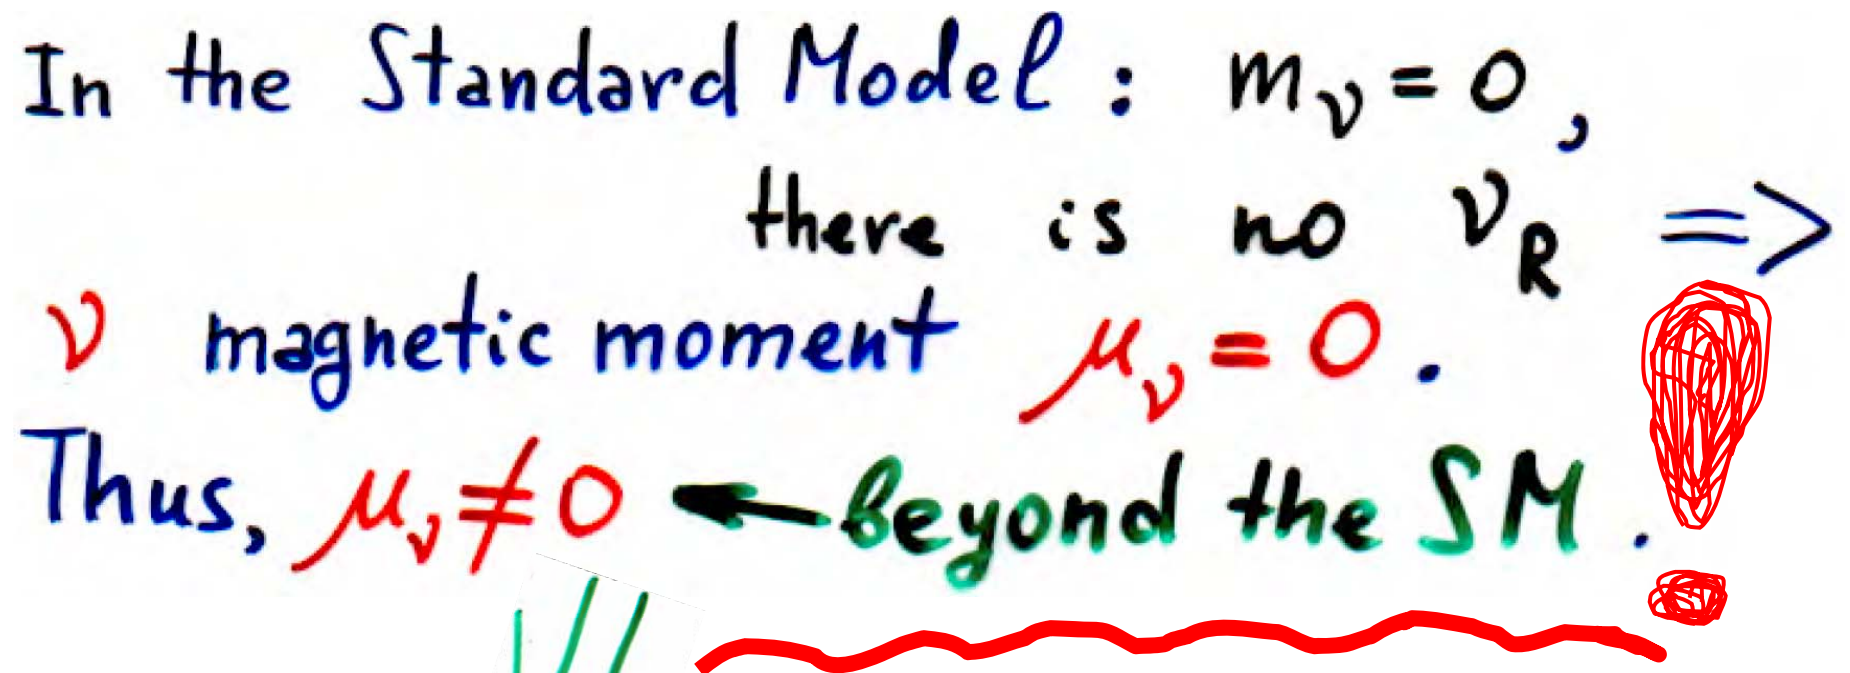 In the Standard Model : m_ν = 0 ,
there is no ν_R ⇒
ν magnetic moment μ_ν = 0 .
Thus, μ_ν ≠ 0 ← beyond the SM . !